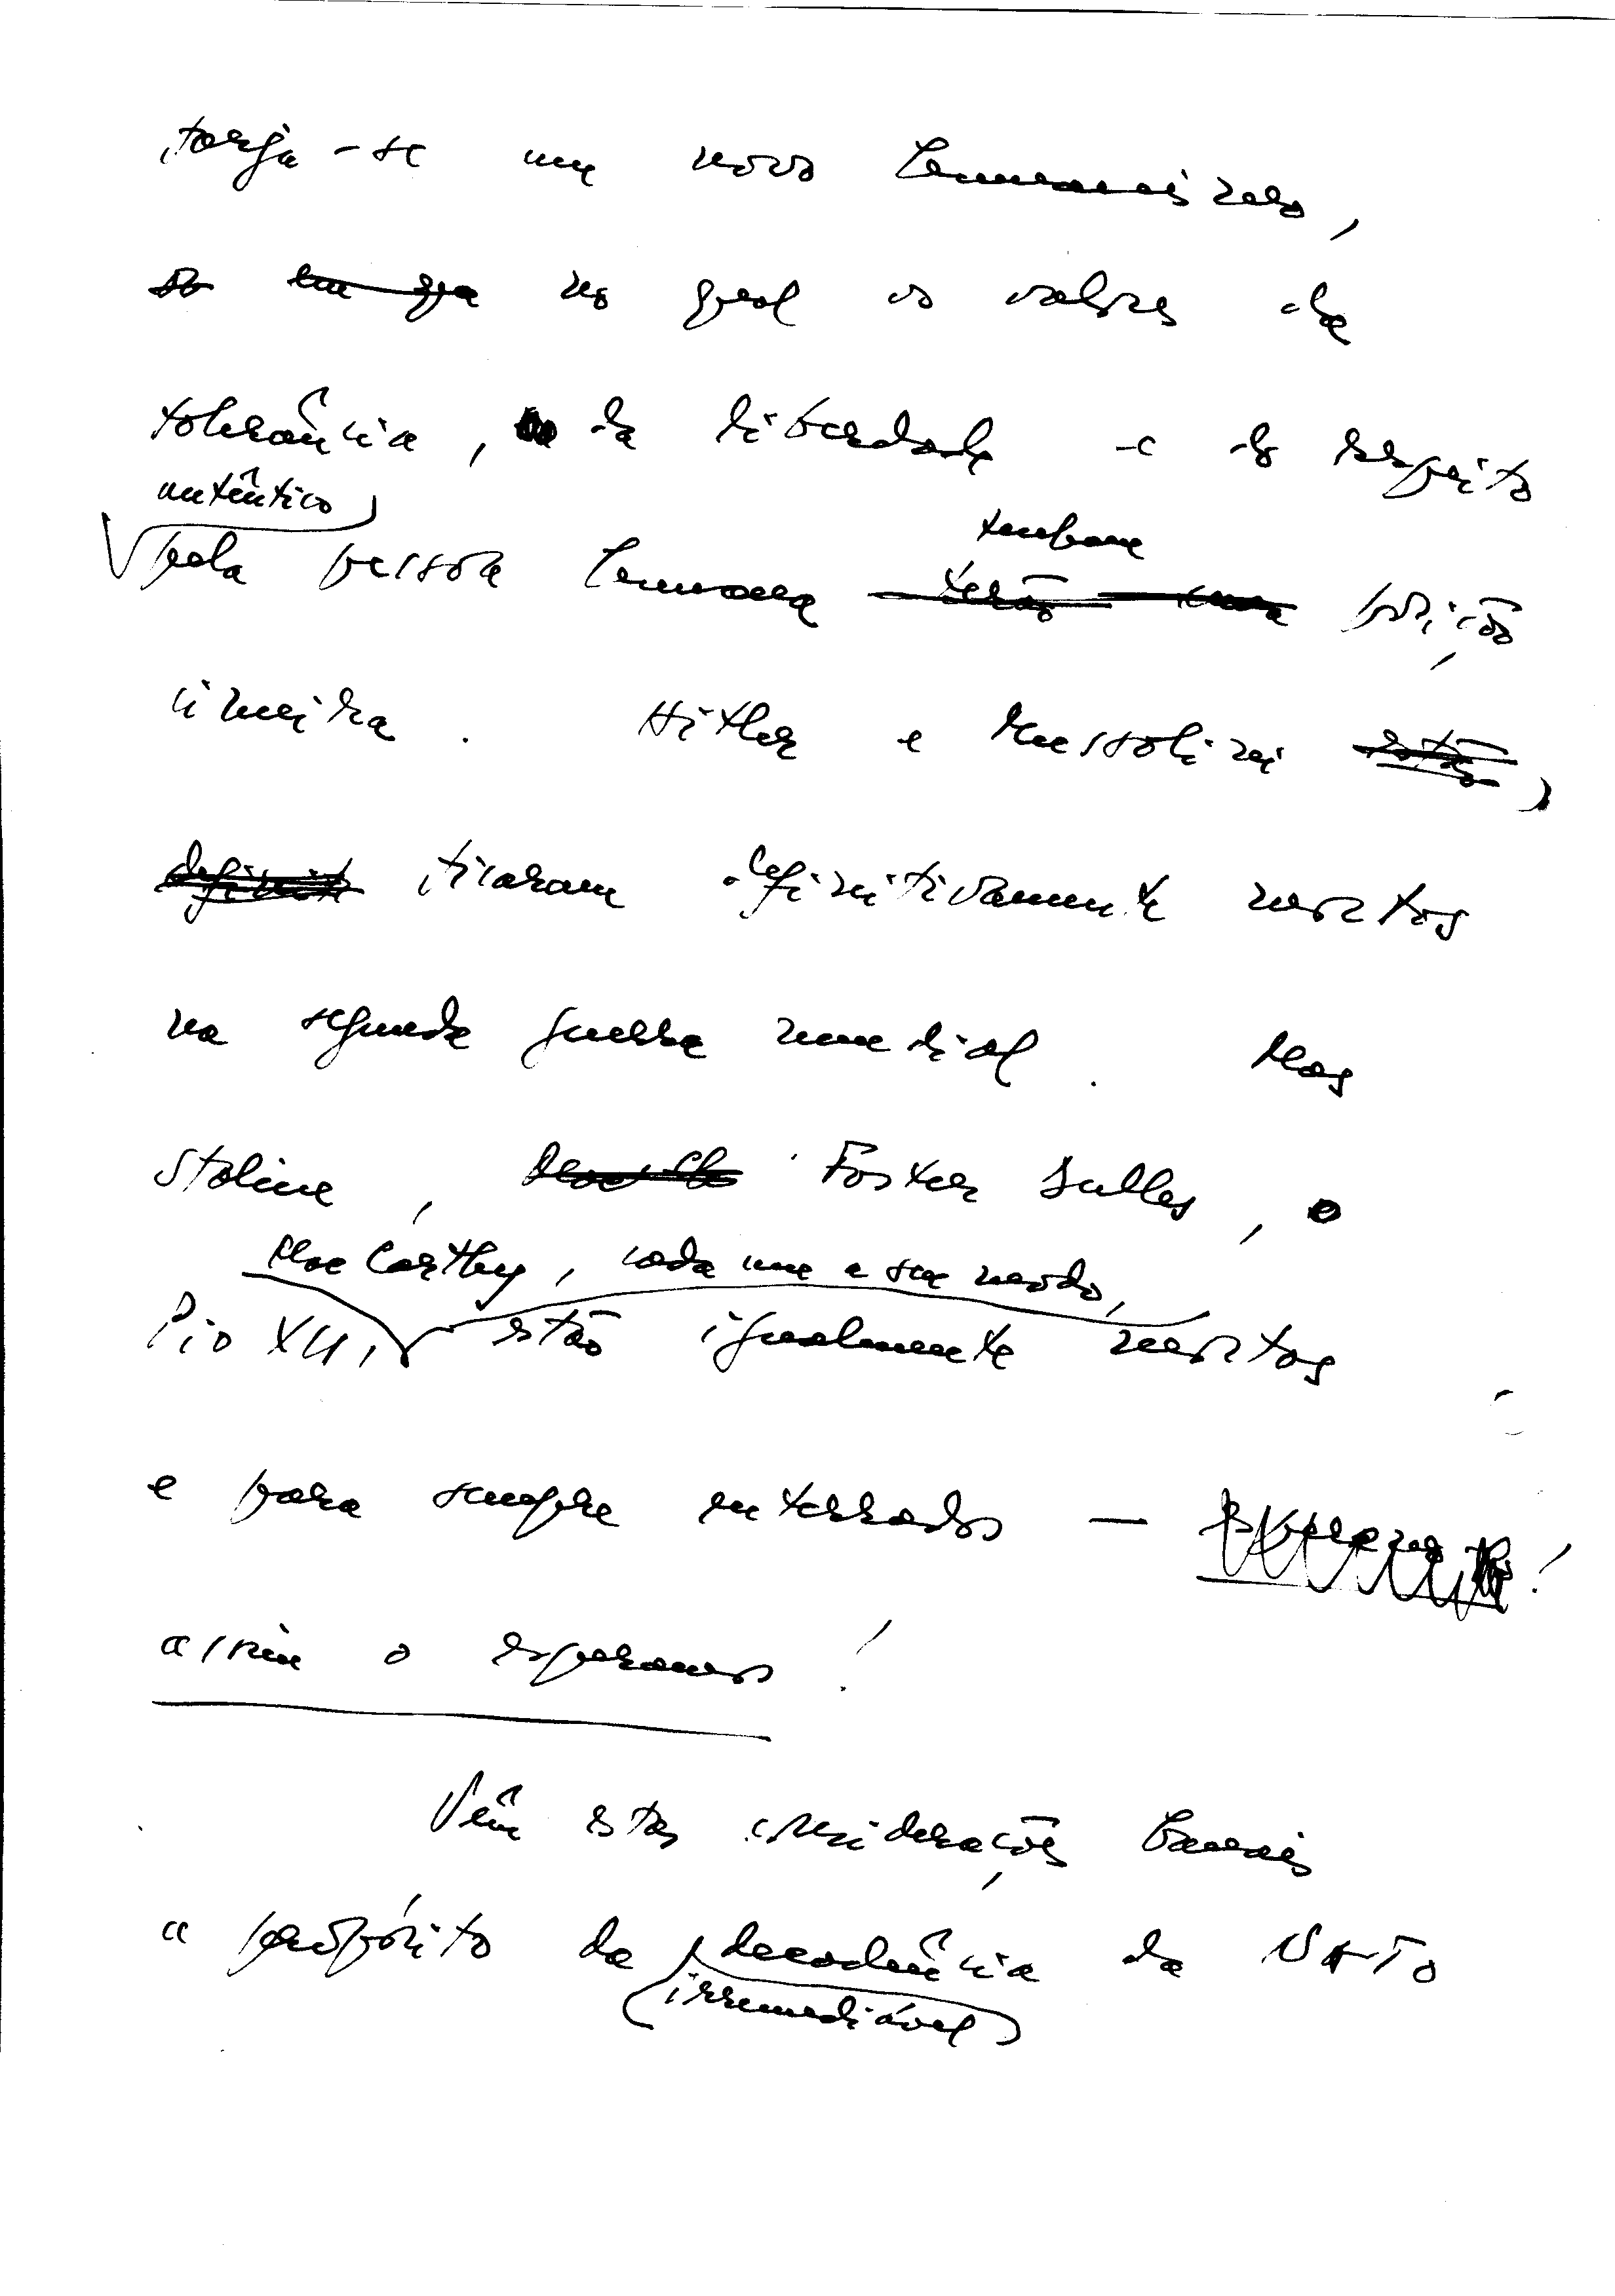 forja-se um novo humanismo,
no qual os valores da
tolerância, da liberdade e do respeito
autêntico
pela pessoa humana ocupam posição
cimeira. Hitler e Mussolini
ficaram definitivamente mortos
na segunda guerra mundial. Mas
Staline, Foster Dulles, e
Mac Carthy, cada um a seu modo,
Pio XII, estão igualmente mortos
e para sempre enterrados — !
assim o esperamos!
Vêm estas considerações banais
a propósito da decadência da NATO
irremediável